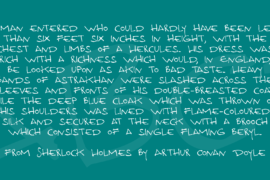 MAN ENTERED WHO COULD HARDLY HAVE BEEN LE
THAN SIX FEET SIX INCHES IN HEIGHT, WITH THE
CHEST AND LIMBS OF A HERCULES. HIS DRESS WAS
RICH WITH A RICHNESS WHICH WOULD, IN ENGLAND,
BE LOOKED UPON AS AKIN TO BAD TASTE. HEAVY
BANDS OF ASTRAKHAN WERE SLASHED ACROSS THE
SLEEVES AND FRONTS OF HIS DOUBLE-BREASTED COA
ILE THE DEEP BLUE CLOAK WHICH WAS THROWN O
HIS SHOULDERS WAS LINED WITH FLAME-COLOURED
SILK AND SECURED AT THE NECK WITH A BROOCH
WHICH CONSISTED OF A SINGLE FLAMING BERYL.
FROM SHERLOCK HOLMES BY ARTHUR CONAN DOYLE